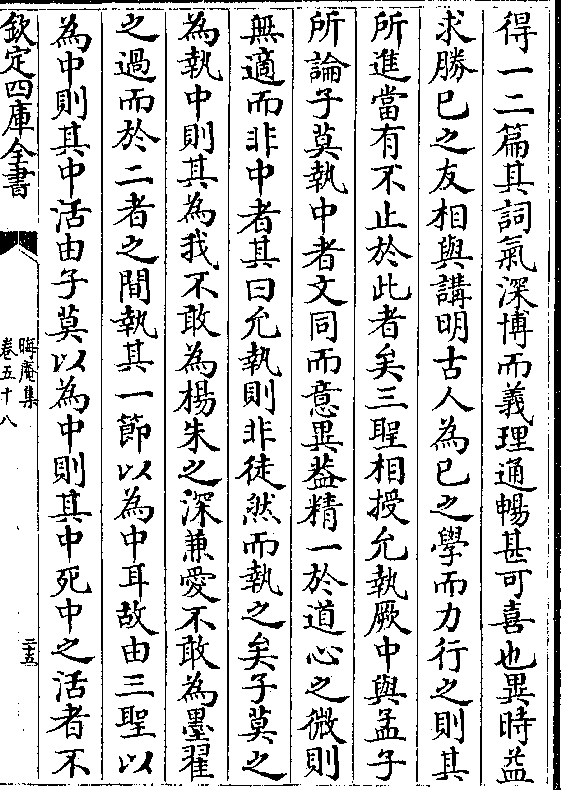 得一二篇其詞氣深博而義理通暢甚可喜也異時益
求勝已之友相與講明古人為已之學而力行之則其
所進當有不止於此者矣三聖相授允執厥中與孟子
所論子莫執中者文同而意異葢精一於道心之微則
無適而非中者其曰允執則非徒然而執之矣子莫之
為執中則其為我不敢為楊朱之深兼愛不敢為墨翟
之過而於二者之間執其一節以為中耳故由三聖以
為中則其中活由子莫以為中則其中死中之活者不
欽定四庫全書
晦庵集
卷五十八
二五